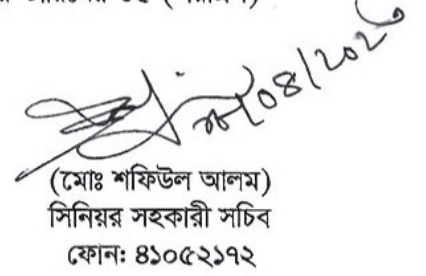 /০৪/২০২৩
(মোঃ শফিউল আলম)
সিনিয়র সহকারী সচিব
ফোন: ৪১০৫২১৭২